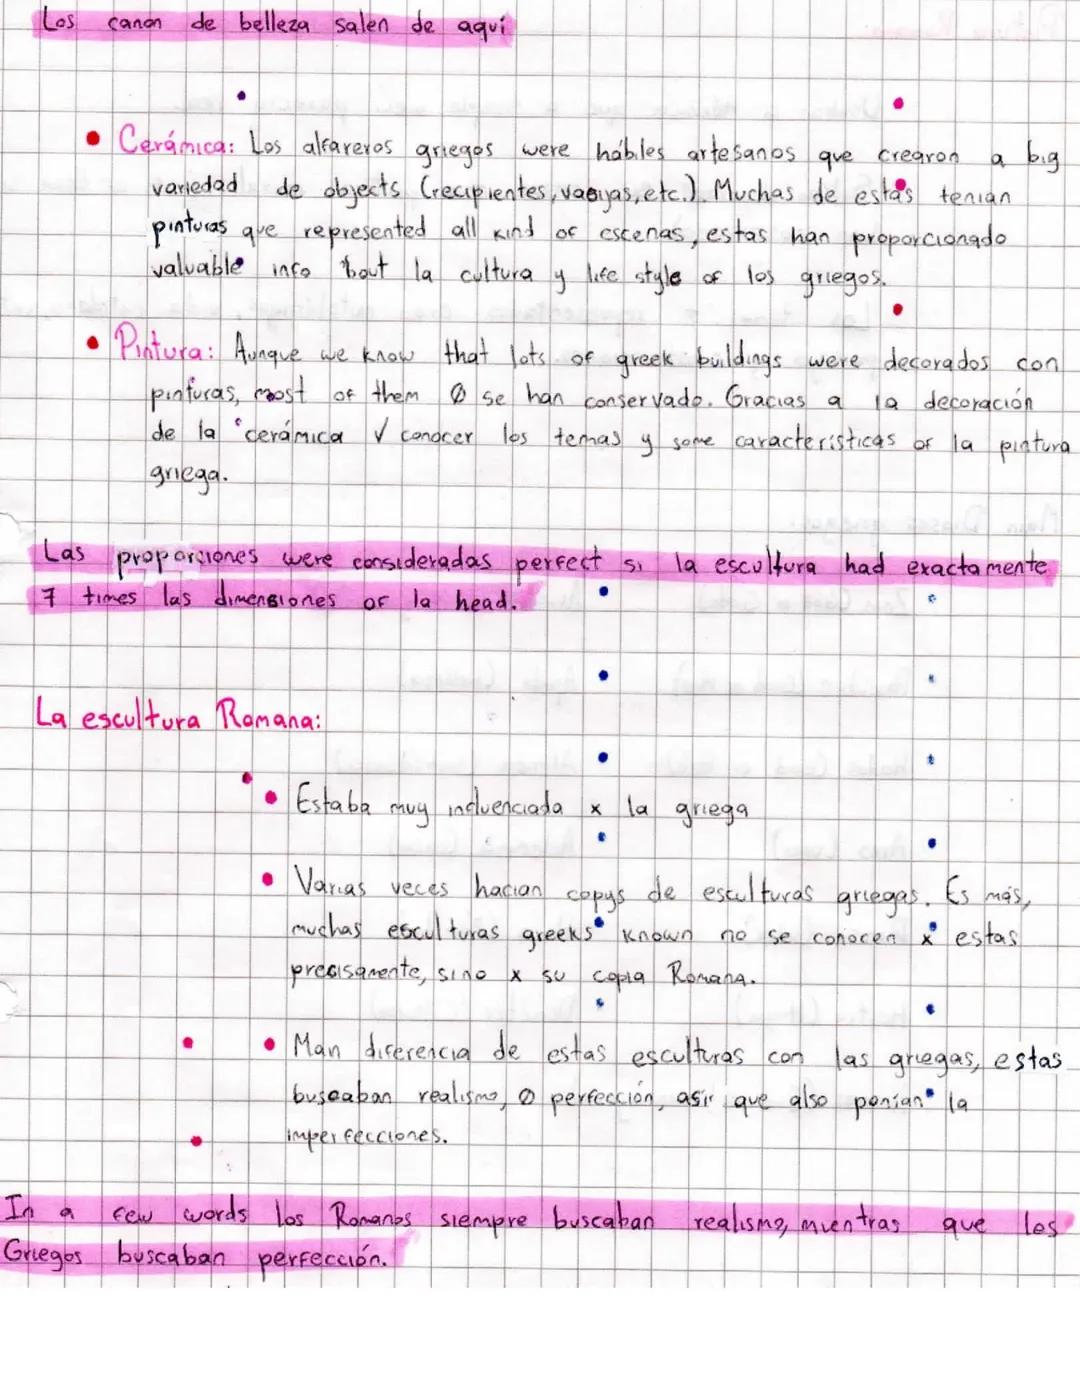 Los canon de belleza salen de aquí
• Cerámica: Los alfareros griegos were hábiles artesanos que crearon a big
variedad de objects (recipientes, vasijas, etc.). Muchas de estas tenian
pinturas que represented all kind of escenas, estas han proporcionado
valuable info 'bout la cultura y life style of los griegos.
• Pintura: Aunque we know that lots of greek buildings were decorados con
pinturas, most of them Ø se han conservado. Gracias a la decoración
de la cerámica √ conocer los temas y some características of la pintura
griega.
Las proporciones were consideradas perfect si la escultura had exactamente
7 times las dimensiones of la head.
La escultura Romana:
• Estaba muy influenciada x la griega
• Varias veces hacian copys de esculturas griegas. Es más,
muchas esculturas greeks known no se conocen x estas
precisamente, sino x su copia Romana.
• Man diferencia de estas esculturas con las griegas, estas
buscaban realismo, Ø perfección, asir que also ponian la
imperfecciones.
In a few words los Romanos siempre buscaban realismo, mientras que los
Griegos buscaban perfección.